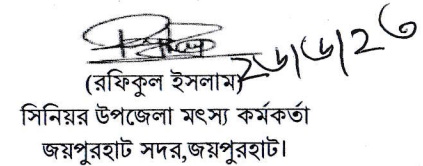 (রফিকুল ইসলাম)
সিনিয়র উপজেলা মৎস্য কর্মকর্তা
জয়পুরহাট সদর,জয়পুরহাট।